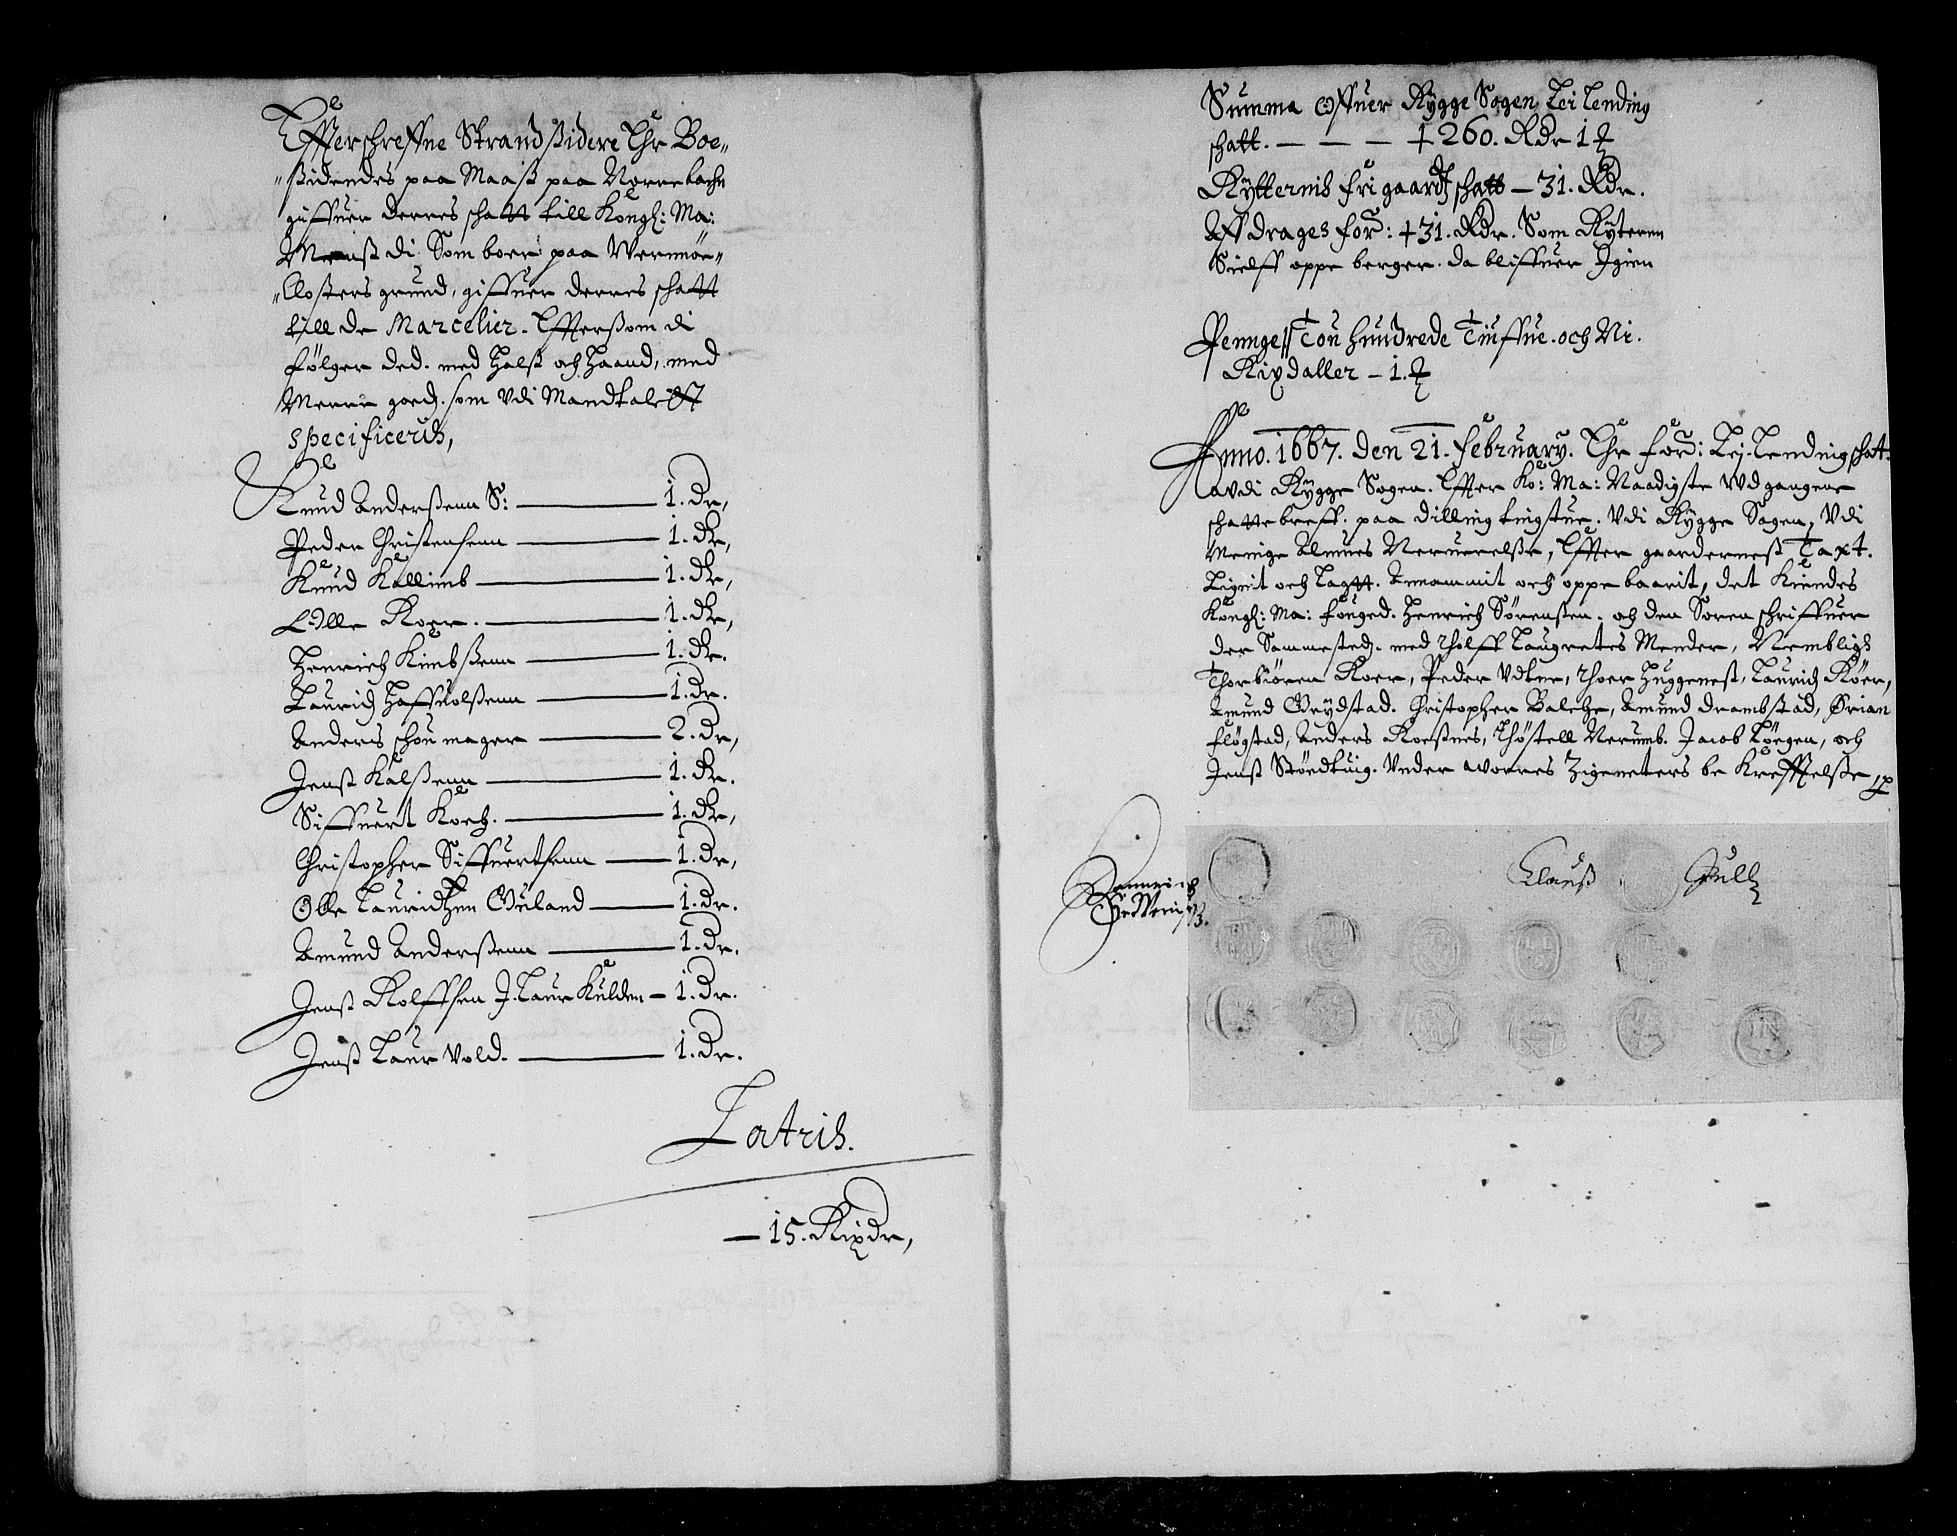 Effterschreffne Strandsidere Ehr Boe„
„ßidendes paa Maass paa Norrebachn
giffuer derres schatt till Kongl: Ma:
Menss di Som boer paa Wernnöe„
„Closters grund, giffuer derres schatt
till de Marcelier. Effterßom di
fölger ded. med Halss och Haand, med
Meere goedz. som Vdi Mandtalet
specificeris,
Knud Anderßenn S: 1. Dr,
Peder Christensenn 1. Dr,
Knud Kallimb 1. Dr,
Olle Roer. 1. Dr,
Henrich Kimbßenn 1. Dr.
Lauridz Haffuolßenn 1. Dr.
Anders schou mager 2. Dr,
Jenss Kalßenn 1. Dr.
Siffuert Koch. 1. Dr,
Christopher Siffuertsenn 1. Dr,
Olle Lauridtzen Guland 1. Dr.
Amund Anderßenn 1. Dr.
Jenss Rolffsen J. Laur Kulden 1. Dr.
Jenss Laur Vold. 1. Dr.
Latris.
15. Rixdr,
Summa Offuer Rygge Sogen Lei lending
schatt. — — — + 260. Rdr 1 ₰
Rytternis fri gaardz schatt — 31. Rdr.
Aff drages for: + 31. Rdr. Som Ryteren
Sielff oppe berger. da bliffuer Igien
Penge// Tou hundrede Tiuffue. och Ni.
Rixdaller — 1. ₰
Anno. 1667. den 21. february. Ehr ford: Lej-Lending schatt.
avdi Rygge Sogen. Effter Ko: Ma: Naadigste Wd gangene
schatte breff. paa dilling tingstue. Vdi Rygge Sogen, Vdi
Menige Almues Neruerelße, Effter gaarderness Taxt.
Lignit och Lagtt. Annammit och oppe baarit, det Kiendes
Kongl: Ma: fouged. Henrich Sörensen. och den Soren schriffuer
der Sammestedz. med tholff Laugrettes Mender, Nemblig
Thorbiören Roer, Peder Vdtne, Thoer Huggenest, Lauridz Röer,
Amund Grydstad. Christopher Balche, Amund drambstad, Brian
flögstad, Anders Roessnes, Thöstell Nerumb. Jacob Lörgen, och
Jenss Stöedtuig. Vnder worres Zigneters be Krefftelße,
Clauss Juell